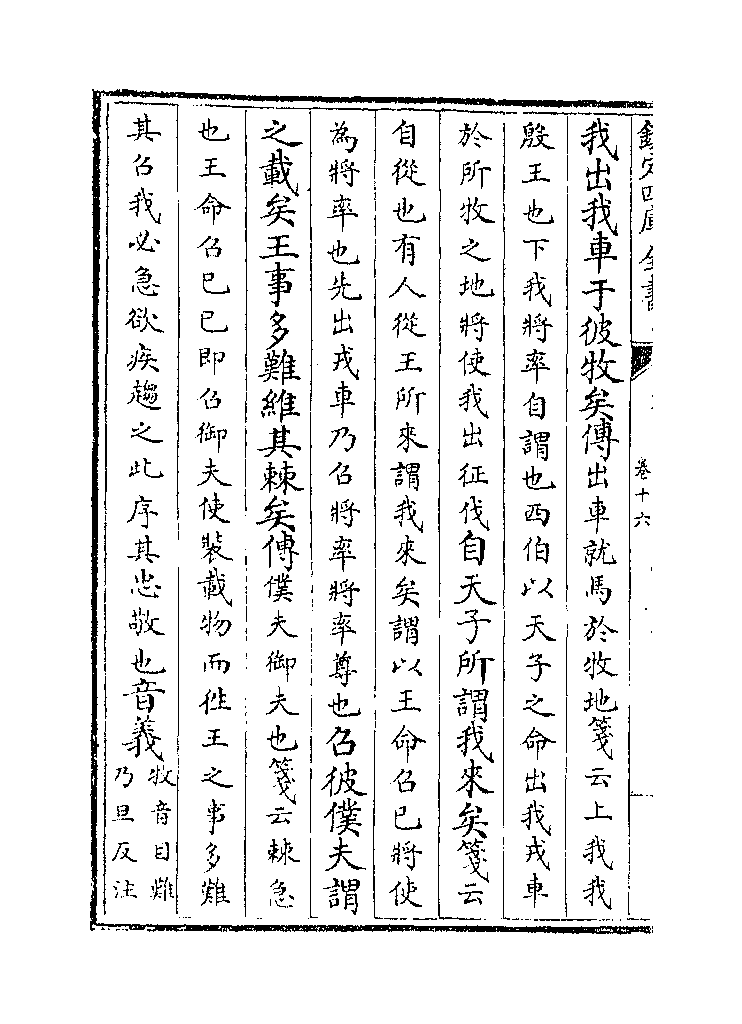 欽定四庫全書
卷十六
我出我車于彼牧矣傳出車就馬於牧地箋云上我我
殷王也下我將率自謂也西伯以天子之命出我戎車
於所牧之地將使我出征伐自天子所謂我來矣箋云
自從也有人從王所來謂我來矣謂以王命召已將使
為將率也先出戎車乃召將率將率尊也召彼僕夫謂
之載矣王事多難維其棘矣傳僕夫御夫也箋云棘急
也王命召已已即召御夫使裝載物而往王之事多難
其召我必急欲疾趨之此序其忠敬也音義
牧音目難
乃旦反注